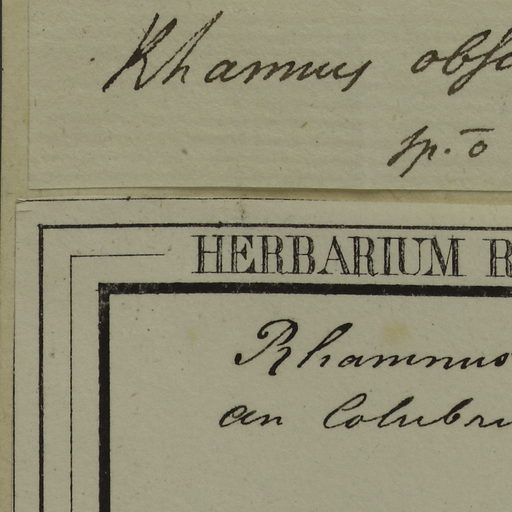 Rhamnus obsc
sp. ō
HERBARIUM R
Rhamnus
an Colubri